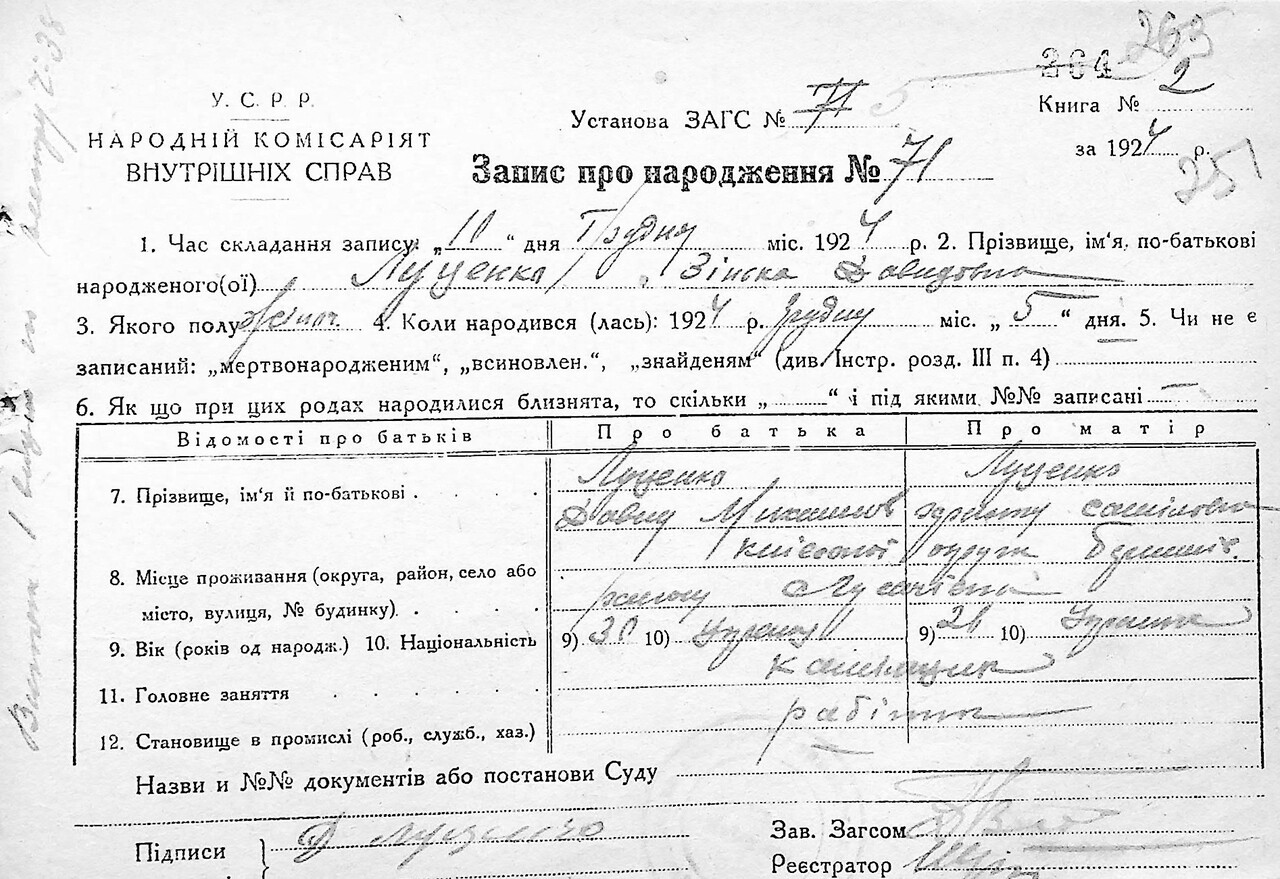 265
264
У. С. Р. Р.
НАРОДНІЙ КОМІСАРІЯТ
ВНУТРІШНІХ СПРАВ
Установа ЗАГС № 71 5
Книга № 2
за 1924 р.
251
Запис про народження № 71
1. Час складання запису: „10“ дня Грудня міс. 1924 р. 2. Прізвище, ім'я, по-батькові
народженого(ої) Луценко Зінька Давидовна
3. Якого полу жіноч. 4. Коли народився (лась): 1924 р. Грудня міс. „5“ дня. 5. Чи не є
записаний: „мертвонародженим“, „всиновлен.“, „знайденям“ (див. Інстр. розд. III п. 4)
6. Як що при цих родах народилися близнята, то скільки „ “ і під якими №№ записані —
Відомості про батьків Про батька Про матір
7. Прізвище, ім'я й по-батькові Луценко Луценко
Давид
Київської округи
8. Місце проживання (округа, район, село або
місто, вулиця, № будинку) району
9. Вік (років од народж.) 10. Національність 9) 30 10) 9) 26 10)
11. Головне заняття
12. Становище в промислі (роб., служб., хаз.)
Назви и №№ документів або постанови Суду
Підписи Д Луценко
Зав. Загсом
Реєстратор